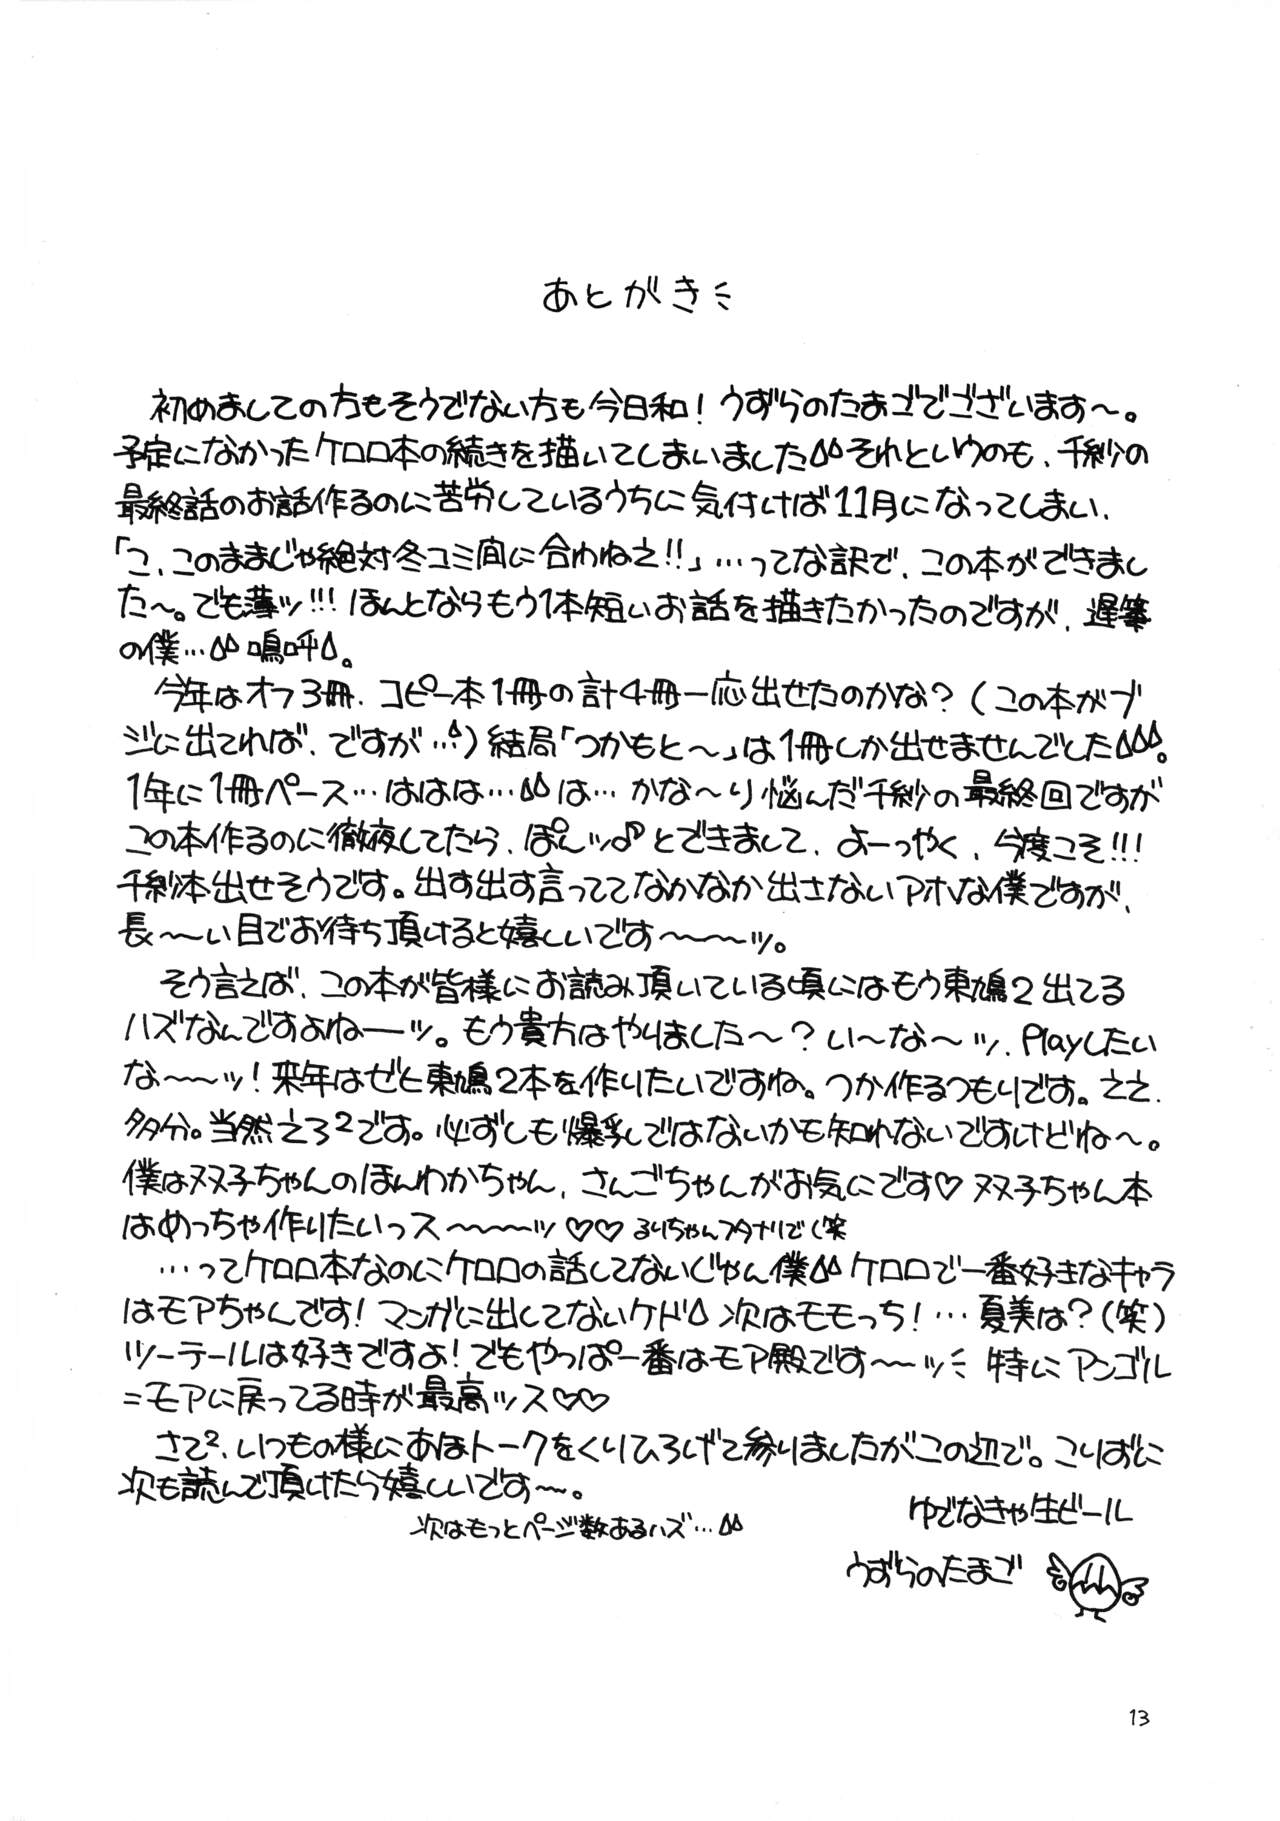 あとがき
初めましての方もそうでない方も今日和！うずらのたまごでございます〜。
予定になかったケロロ本の続きを描いてしまいました それというのも、千紗の
最終話のお話作るのに苦労しているうちに気付けば11月になってしまい、
「こ、このままじゃ絶対冬コミ間に合わねえ!!」…ってな訳で、この本ができまし
た〜。でも薄ッ!!! ほんとならもう1本短いお話を描きたかったのですが、遅筆
の僕… 嗚呼。
今年はオフ3冊、コピー本1冊の計4冊一応出せたのかな？（この本がブ
ジに出てれば、ですが…）結局「つかもと〜」は1冊しか出せませんでした。
1年に1冊ペース…ははは… は… かな〜り悩んだ千紗の最終回ですが
この本作るのに徹夜してたら、ぽんッ♪とできまして、よーっやく、今度こそ!!!
千紗本出せそうです。出す出す言っててなかなか出さないアホな僕ですが、
長〜〜い目でお待ち頂けると嬉しいです〜〜〜ッ。
そう言えば、この本が皆様にお読み頂いている頃にはもう東鳩2出てる
ハズなんですよねーッ。もう貴方はやりました〜？い〜な〜ッ、Playしたい
な〜〜ッ！来年はぜひ東鳩2本を作りたいですね。つか作るつもりです。ええ、
多分。当然えろ²です。必ずしも爆乳ではないかも知れないですけどね〜。
僕は双子ちゃんのほんわかちゃん、さんごちゃんがお気にです♡ 双子ちゃん本
はめっちゃ作りたいっス〜〜〜ッ♡♡ るりちゃんフタナリで（笑
…ってケロロ本なのにケロロの話してないじゃん僕 ケロロで一番好きなキャラ
はモアちゃんです！マンガに出してないケド 次はモモっち！…夏美は？（笑）
ツーテールは好きですよ！でもやっぱ一番はモア殿です〜〜ッ 特にアンゴル
=モアに戻ってる時が最高ッス♡♡
さて²、いつもの様にあほトークをくりひろげて参りましたがこの辺で。こりずに
次も読んで頂けたら嬉しいです〜〜。
次はもっとページ数あるハズ…
ゆでなきゃ生ビール
うずらのたまご
13